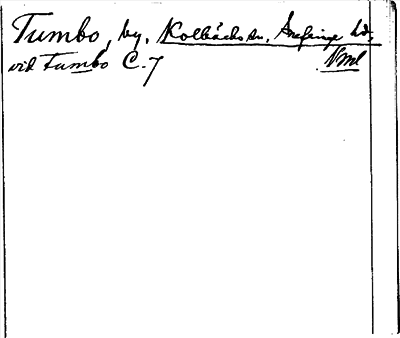 Tumbo, by, Kolbäcks sn, Snefringe hd,
vid Tumbo C. 7 Vml